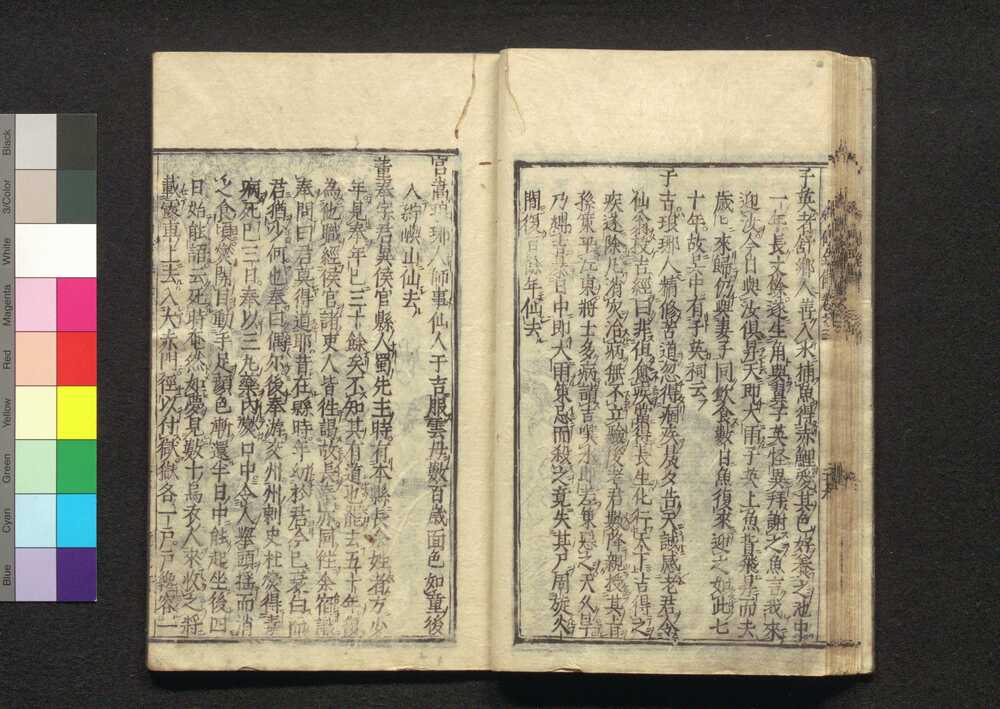 子英者舒鄉人善入水捕魚得赤鯉愛其色好養之池中
一年長丈餘遂生角與翼子英怪異拜謝之魚言我來
迎汝今日與汝俱昇天即大雨子英上魚背飛昇而去
歲歲來歸仍與妻子同飲食數日魚復來迎之如此七
十年故吳中有子英祠云
于吉瑯琊人精修苦道忽得痼疾晨夕告天誠感老君令
仙翁授吉經曰非但愈疾當得長生化行天下吉得之
疾遂除凡消災治病無不立驗後老君數降親授其旨
孫策平江東將士多病請吉噀水即差策忌之天久旱
乃縛吉暴日中即大雨策忌而殺之竟失其尸周旋人
間復百餘年仙去
宮嵩瑯琊人師事仙人于吉服雲母數百歲面色如童後
入紵嶼山仙去
董奉字君異侯官縣人蜀先主時有本縣長令姓者方少
年見奉年已三十餘矣不知其有道也能去五十年復
為他職經侯官諸吏人皆往謁故長奉亦同往令宿識
奉問曰君莫得道耶昔在縣時年紀如君今已衰白而
君猶少何也奉曰偶爾後奉游交州州刺史杜燮得毒
病死已三日奉以三丸藥內燮口中令人舉頭搖而消
之食頃燮開目動手足顏色漸還半日中能起坐後四
日始能語云死時奄然如夢見數十烏衣人來收之將
載露車上去入大赤門徑以付獄獄各一戶戶纔容一